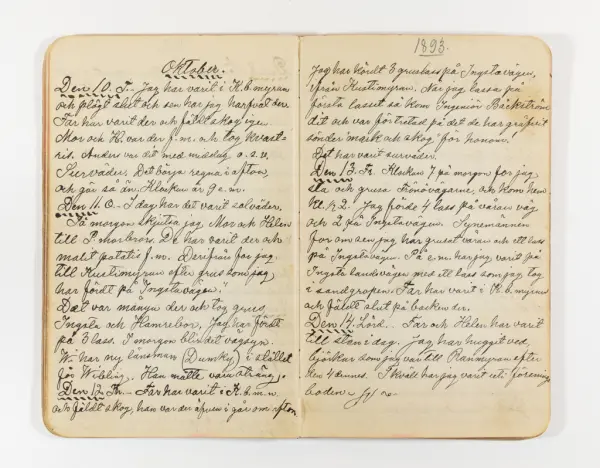 Oktober.
Den 10. T.- Jag har varit i K.b.myran
och plögt slut och sen har jag harfvat der.
Far har varit der och fäldt skog igen.
Mor och H. var der f.m. och tog kvast-
ris. Anders var dit med middag o.s.v.
Surväder. Det börja regna i afton,
och gör så än. Klockan är 9 e.m.
Den 11. O.- I dag har det varit solväder.
På morgon skjutsa jag Mor och Helen
till P. morbrors. De har varit der och
malit patatis f.m. Derifrån for jag
till Kustimyran efter grus som jag
har fördt på "Ingstavägen".
Det var många der och tog grus,
Ingsta och Hamrebor, Jag har fördt
på 3 lass. I morgon blir det vägsyn.
Vi har ny länsman (Dumky) i stället
för Wibling. Han måtte vara sträng.
Den 12. Th.- Far har varit i K.b.m.n
och fäldt skog, han var der äfven i går om afton.
1893.
Jag har kördt 3 gruslass på Ingstavägen,
ifrån Kustimyran. När jag lassa på
första lasset så kom Ingeniör Bäckström
dit och var förtretad på det de har gräfvit
sönder "mark och skog" för honom!
Det har varit surväder.
Den 13. Fr. Klockan 7 på morgon for jag
sta och grusa Fönövägarne, och kom hem
kl. ½ 2. Jag förde 4 lass på våran väg
och 2 på Ingstavägen. Synemännen
for om sen jag har grusat våran och ett lass
på Ingstavägen. På e.m. har jag varit på
Ingsta landsvägen med ett lass som jag tog
i sandgropen. Far har varit i K.b.myran
och fäldt slut på backen der.
Den 14. Lörd.. Far och Helen har varit
till stan i dag. Jag har huggit ved,
björkar som jag var till Rammyran efter
den 4 dennes. I kväll har jag varit uti förenings
boden